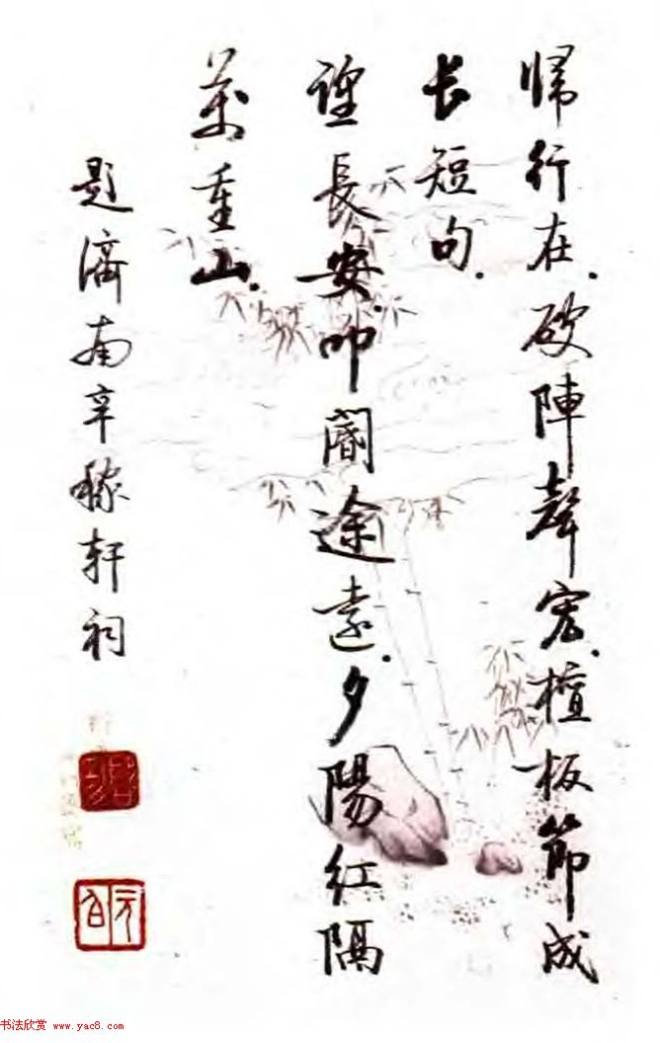 歸行在.破陣聲宏.檀板節成
长短句.
望長安.叩閽途遠.夕陽紅隔
萬重山.
題濟南辛稼軒祠
元白
书法欣赏 www.yac8.com